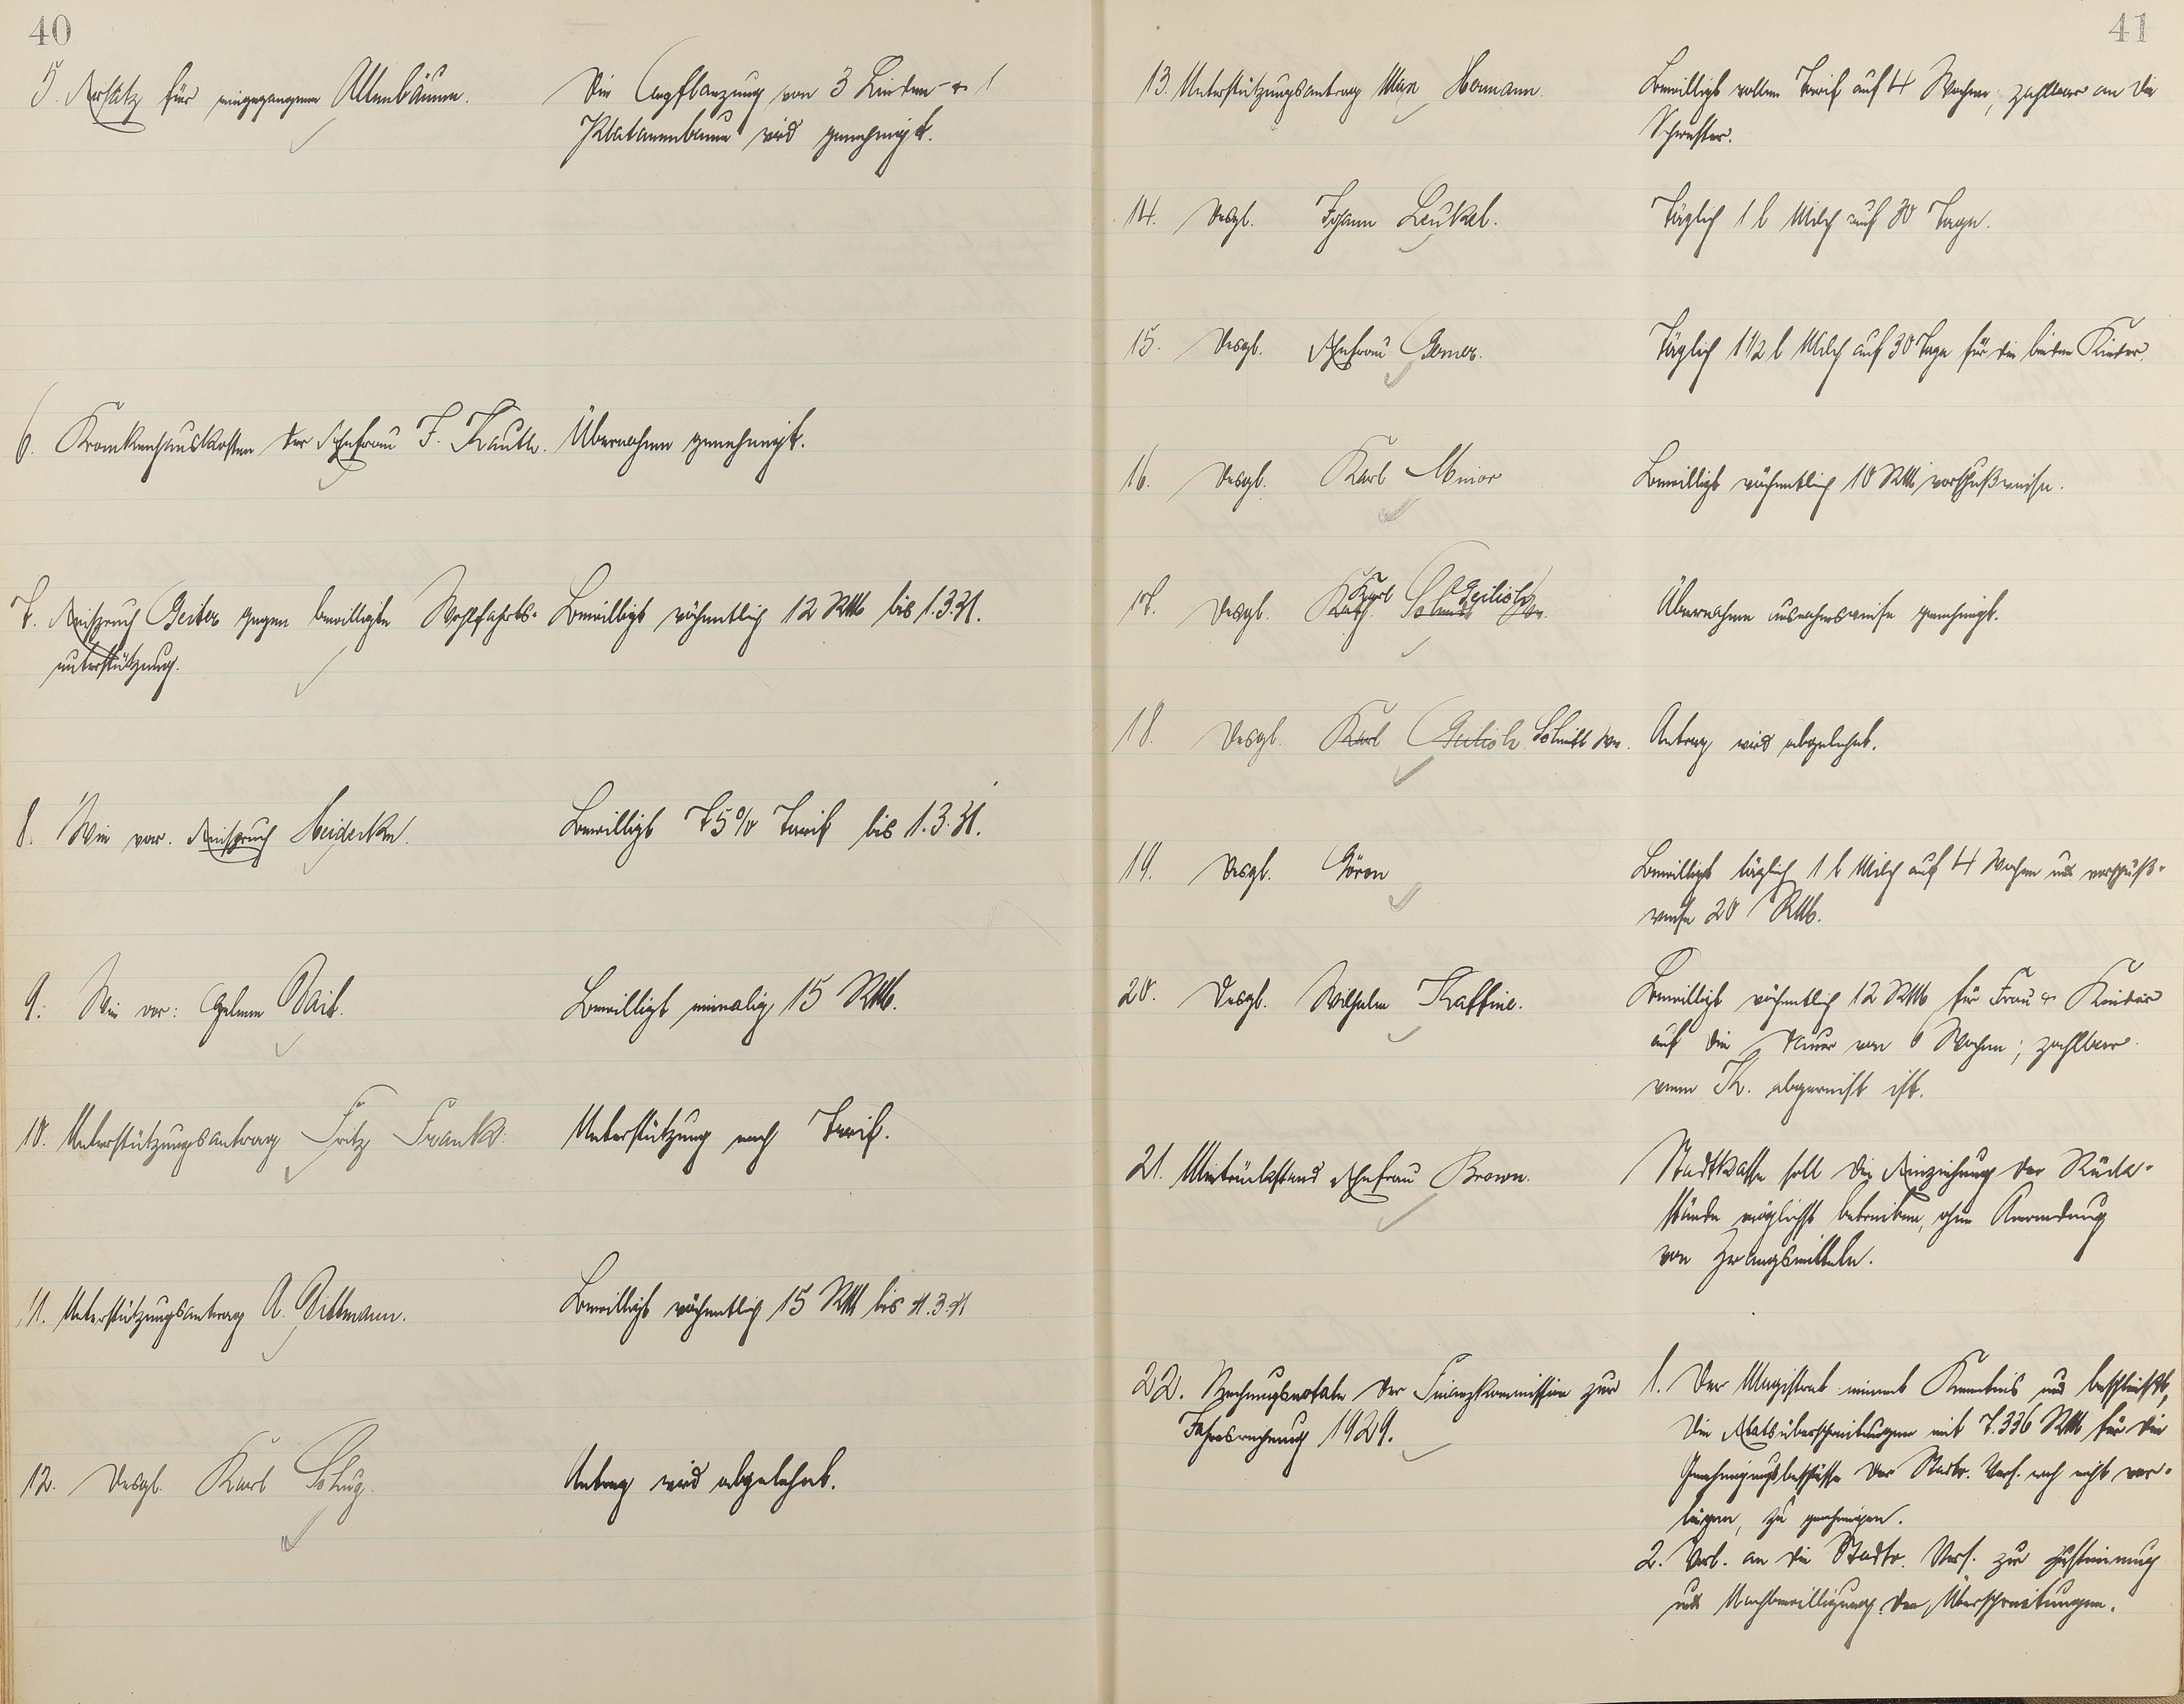 40
5. Ersatz für eingegangene Alleebäume.
Die Anpflanzung von 3 Linden- u. 1
Platanenbaum wird genehmigt.
6. Krankenhauskosten der Ehefrau F. Kauth.
Übernahme genehmigt.
7. Einspruch Geiter gegen bewilligte Wohlfahrts-
unterstützung.
Bewilligt wöchentlich 12 RM bis 1.3.31.
8. Wie vor. Einspruch
Bewilligt 75% Tarif bis 1.3.31.
9. Wie vor:
Bewilligt einmalig 15 RM.
10. Unterstützungsantrag Fritz Frank.
Unterstützung nach Tarif.
11. Unterstützungsantrag A. Dittmann.
Bewilligt wöchentlich 15 RM bis 31.3.31
12. Desgl. Karl Schug.
Antrag wird abgelehnt.
41
13. Unterstützungsantrag Max Hamann.
Bewilligt vollen Tarif auf 4 Wochen, zahlbar an die
Schwester.
14. Desgl. Johann Leukel.
Täglich 1 l Milch auf 30 Tage.
15. Desgl. Ehefrau
Täglich 1 1/2 l Milch auf 30 Tage für die beiden Kinder.
16. Desgl. Karl Meier
Bewilligt wöchentlich 10 RM vorschußweise.
17. Desgl. Karl
Übernahme ausnahmsweise genehmigt.
18. Desgl. Karl Schmitt Ww.
Antrag wird abgelehnt.
19. Desgl. Gören
Bewilligt täglich 1 l Milch auf 4 Wochen und vorschuß-
weise 20 RM.
20. Desgl. Wilhelm Kaffine.
Bewilligt wöchentlich 12 RM für Frau u. Kinder
auf die Dauer von 6 Wochen; zahlbar
wenn K. abgereist ist.
21. Mietrückstand Ehefrau Brown.
Stadtkasse soll die Einziehung der Rück-
stände möglichst betreiben, ohne Anwendung
von Zwangsmitteln.
22. Rechnungsnotate der Finanzkommission zur
Jahresrechnung 1929.
1. Der Magistrat nimmt Kenntnis und beschließt,
die Etatsüberschreitungen mit 7.336 RM für die
Genehmigungsbeschlüsse der Stadtv. Vers. noch nicht vor-
liegen, zu genehmigen.
2. Vorl. an die Stadtv. Vers. zur Zustimmung
und Nachbewilligung der Überschreitungen.